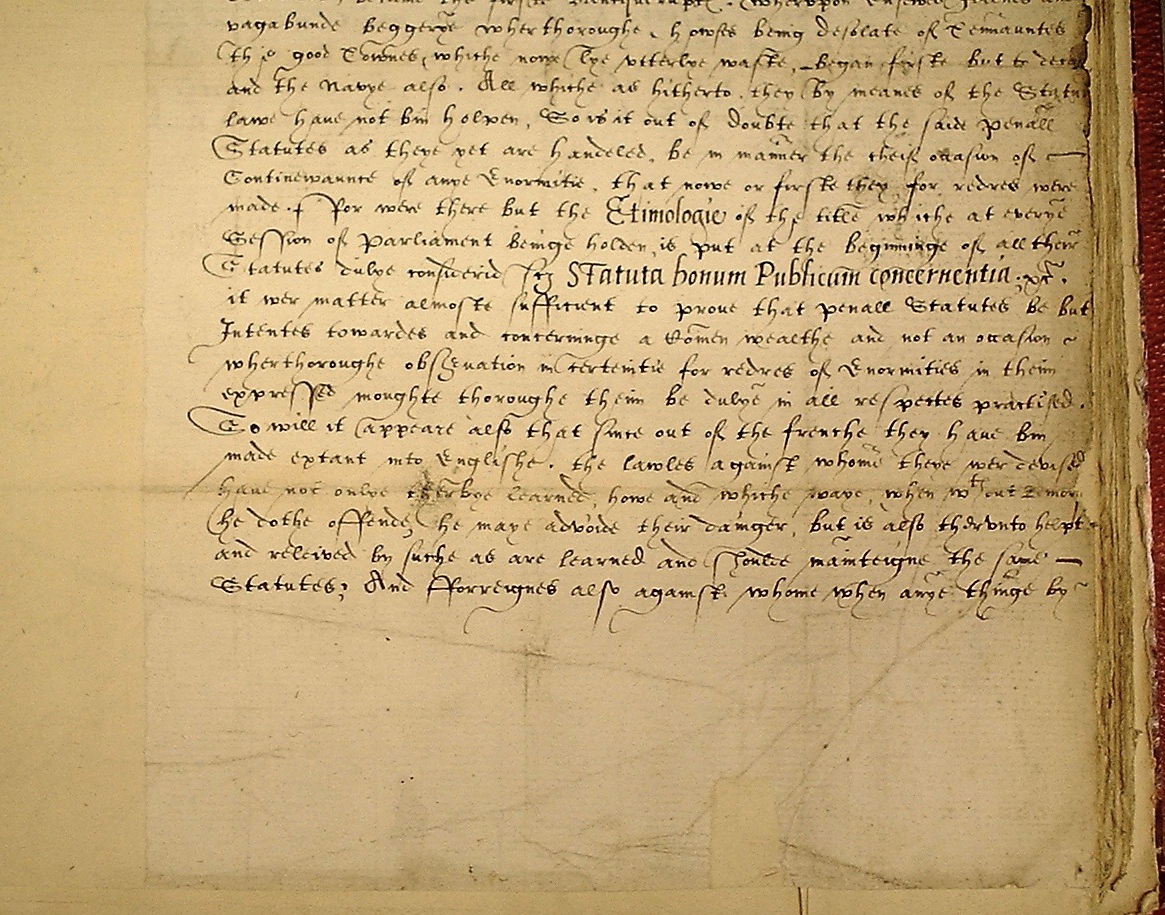 became the firste . Wherupon Ensewed
vagabunde beggerye wherthoroughe, howses being desolate of Tennauntes
The good Townes, whiche nowe lye vtterlye waste, began firste but to decay
and the Navye also. All whiche as hitherto they by meanes of the Statute
lawe haue not bin holpen, So is it out of doubte that the saide penall
Statutes as theye yet are handeled, be in manner the cheif occasion of
Continewaunce of anye Enormitie, that nowe or firste they for redres were
made. ffor were there but the Etimologie of the title whiche at everye
Session of Parliament beinge holden, is put at the beginninge of all their
Statutes dulye considerid scz STatuta bonum Publicum concernentia. &c.
it wer matter almoste sufficient to proue that penall Statutes be but
Intentes towardes and concerninge a Comen wealthe and not an occasion
wherthoroughe obseruation in certeintie for redres of Enormities in theim
expressed moughte thoroughe theim be dulye in all respectes practised.
So will it appeare also that since out of the frenche they haue bin
made extant into Englishe. the lawles against whome theye wer devised
haue not onlye therbye learned, howe and whiche waye, when wthout
he dothe offende, he maye advoide their daunger, but is also thervnto helpt
and releived by suche as are learned and shoulde mainteigne the same
Statutes; And fforreignes also against whome when anye thinge by